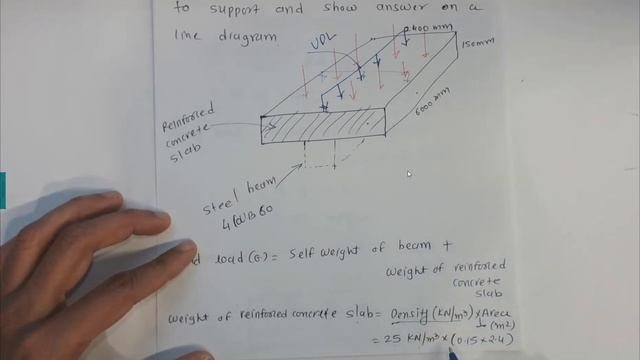 to support and show answer on a
line diagram
UDL
2400 mm
150mm
6000 mm
Reinforced
concrete
slab
Steel beam
load (G) = Self weight of beam +
weight of reinforced
concrete
slab
weight of reinforced concrete slab = Density (KN/m³) × Area
(m²)
= 25 KN/m³ × (0.15 × 2.4)